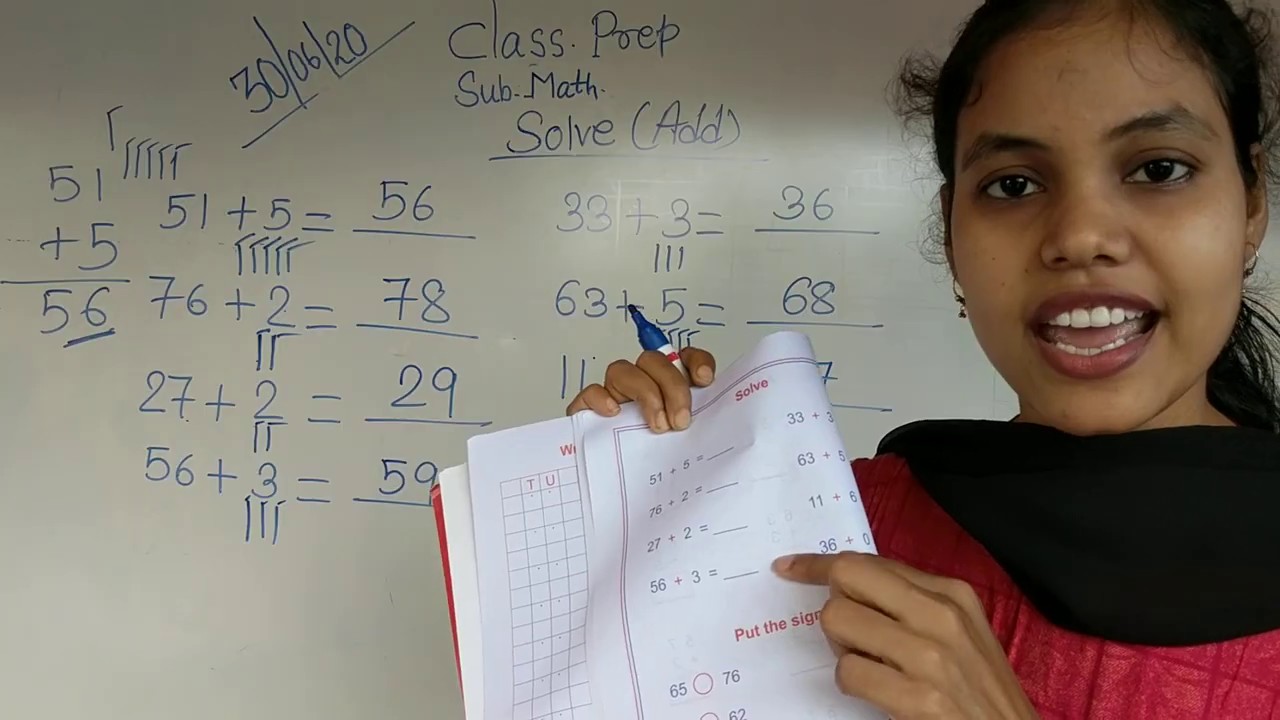 30/06/20
Class. Prep
Sub-Math.
Solve (Add)
51
+5
56
51 + 5 = 56
76 + 2 = 78
27 + 2 = 29
56 + 3 = 59
33 + 3 = 36
63 + 5 = 68
11
7
T U
Solve
51 + 5 = ____
76 + 2 = ____
27 + 2 = ____
56 + 3 = ____
33 + 3
63 + 5
11 + 6
36 + 0
Put the sign
65 ○ 76
62